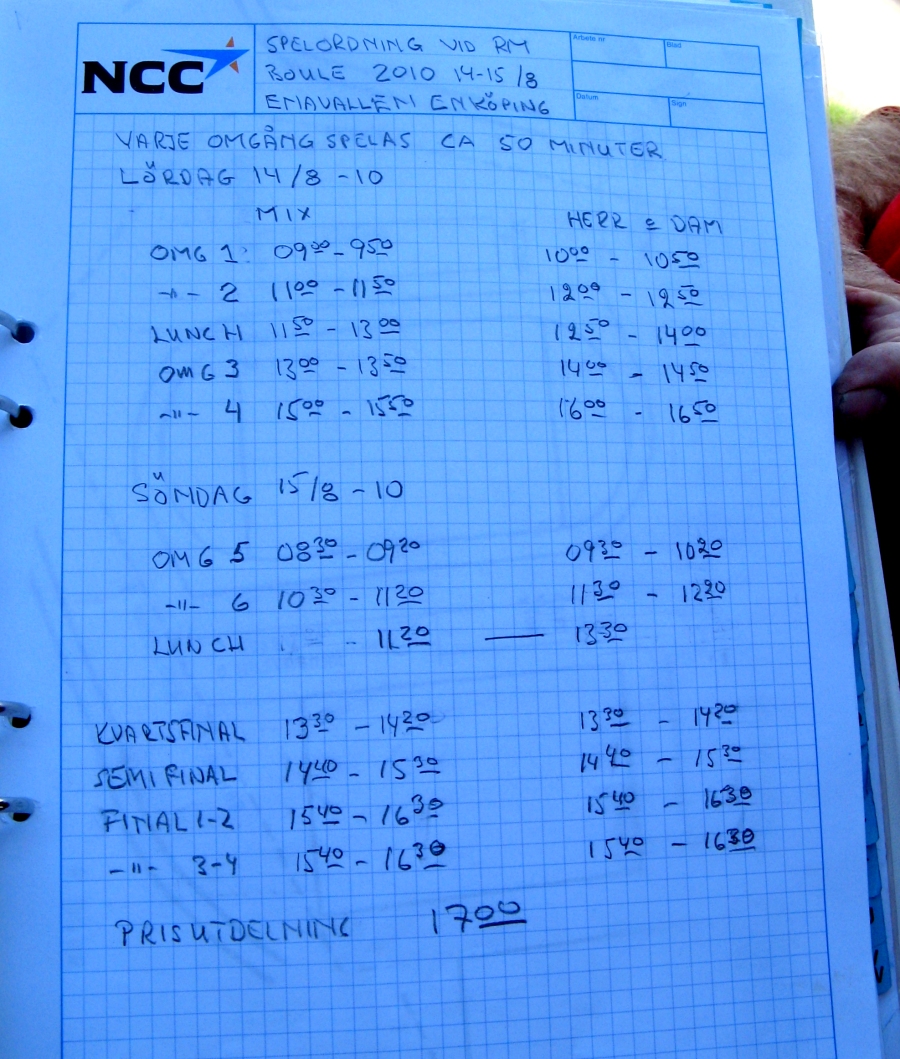 NCC
SPELORDNING VID RM
BOULE 2010 14-15/8
ENAVALLEN ENKÖPING
Arbets nr
Blad
Datum
Sign
VARJE OMGÅNG SPELAS CA 50 MINUTER
LÖRDAG 14/8 -10
MIX HERR & DAM
OMG 1: 0900 - 950 1000 - 1050
-"- 2 1100 - 1150 1200 - 1250
LUNCH 1150 - 1300 1250 - 1400
OMG 3 1300 - 1350 1400 - 1450
-"- 4 1500 - 1550 1600 - 1650
SÖNDAG 15/8 -10
OMG 5 0830 - 0920 0930 - 1020
-"- 6 1030 - 1120 1130 - 1220
LUNCH - 1120 — 1330
KVARTSFINAL 1330 - 1420 1330 - 1420
SEMIFINAL 1440 - 1530 1440 - 1530
FINAL 1-2 1540 - 1630 1540 - 1630
-"- 3-4 1540 - 1630 1540 - 1630
PRISUTDELNING 1700